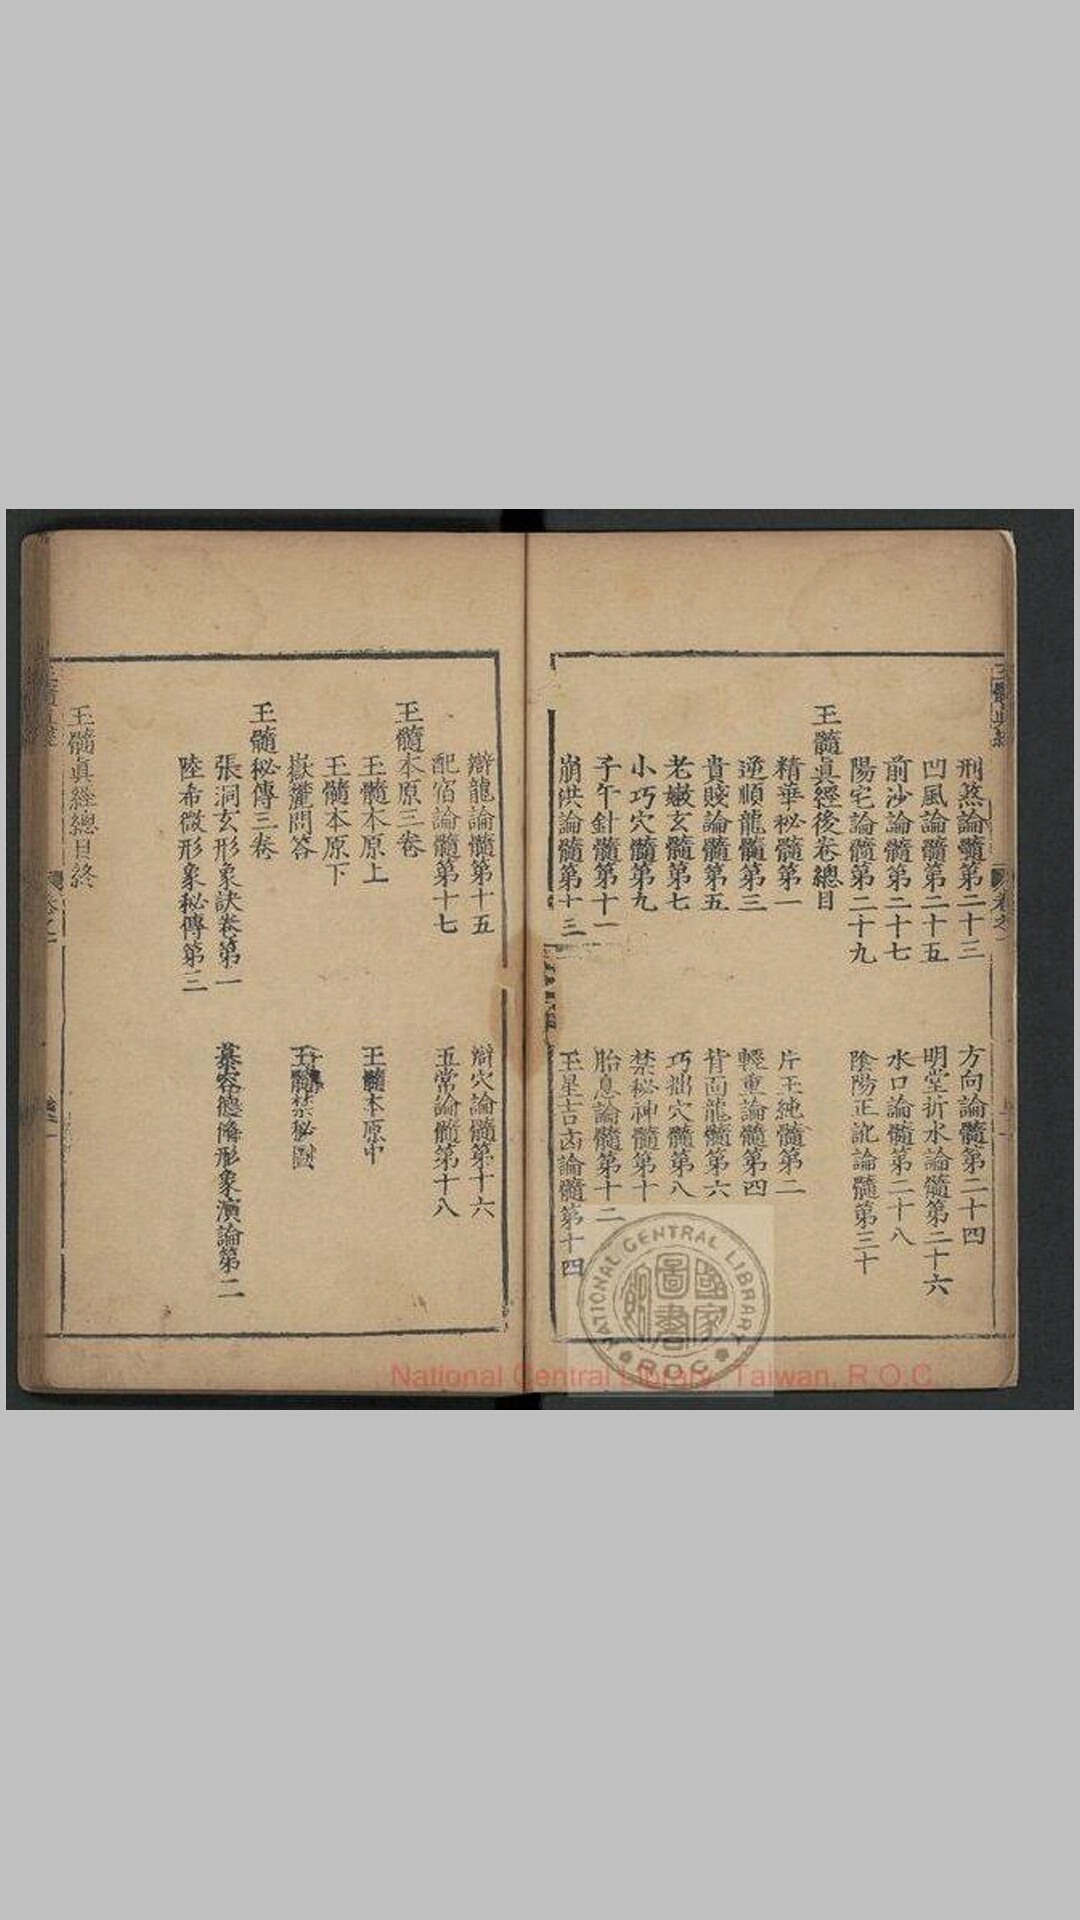 刑煞論髓第二十三
方向論髓第二十四
凹風論髓第二十五
明堂折水論髓第二十六
前沙論髓第二十七
水口論髓第二十八
陽宅論髓第二十九
陰陽正訛論髓第三十
玉髓眞經後卷總目
精華秘髓第一
片玉純髓第二
逆順龍髓第三
輕重論髓第四
貴賤論髓第五
背面龍髓第六
老嫩玄髓第七
巧拙穴髓第八
小巧穴髓第九
禁秘神髓第十
子午針髓第十一
胎息論髓第十二
崩洪論髓第十三
玉星吉凶論髓第十四
辯龍論髓第十五
辯穴論髓第十六
配宿論髓第十七
五常論髓第十八
玉髓本原三卷
玉髓本原上
玉髓本原中
玉髓本原下
嶽麓問答
玉髓禁秘圖
玉髓秘傳三卷
張洞玄形象訣卷第一
形象演論第二
陸希微形象秘傳第三
玉髓眞經總目終
國家圖書館
NATIONAL CENTRAL LIBRARY
R.O.C
National Central Library, Taiwan, R.O.C